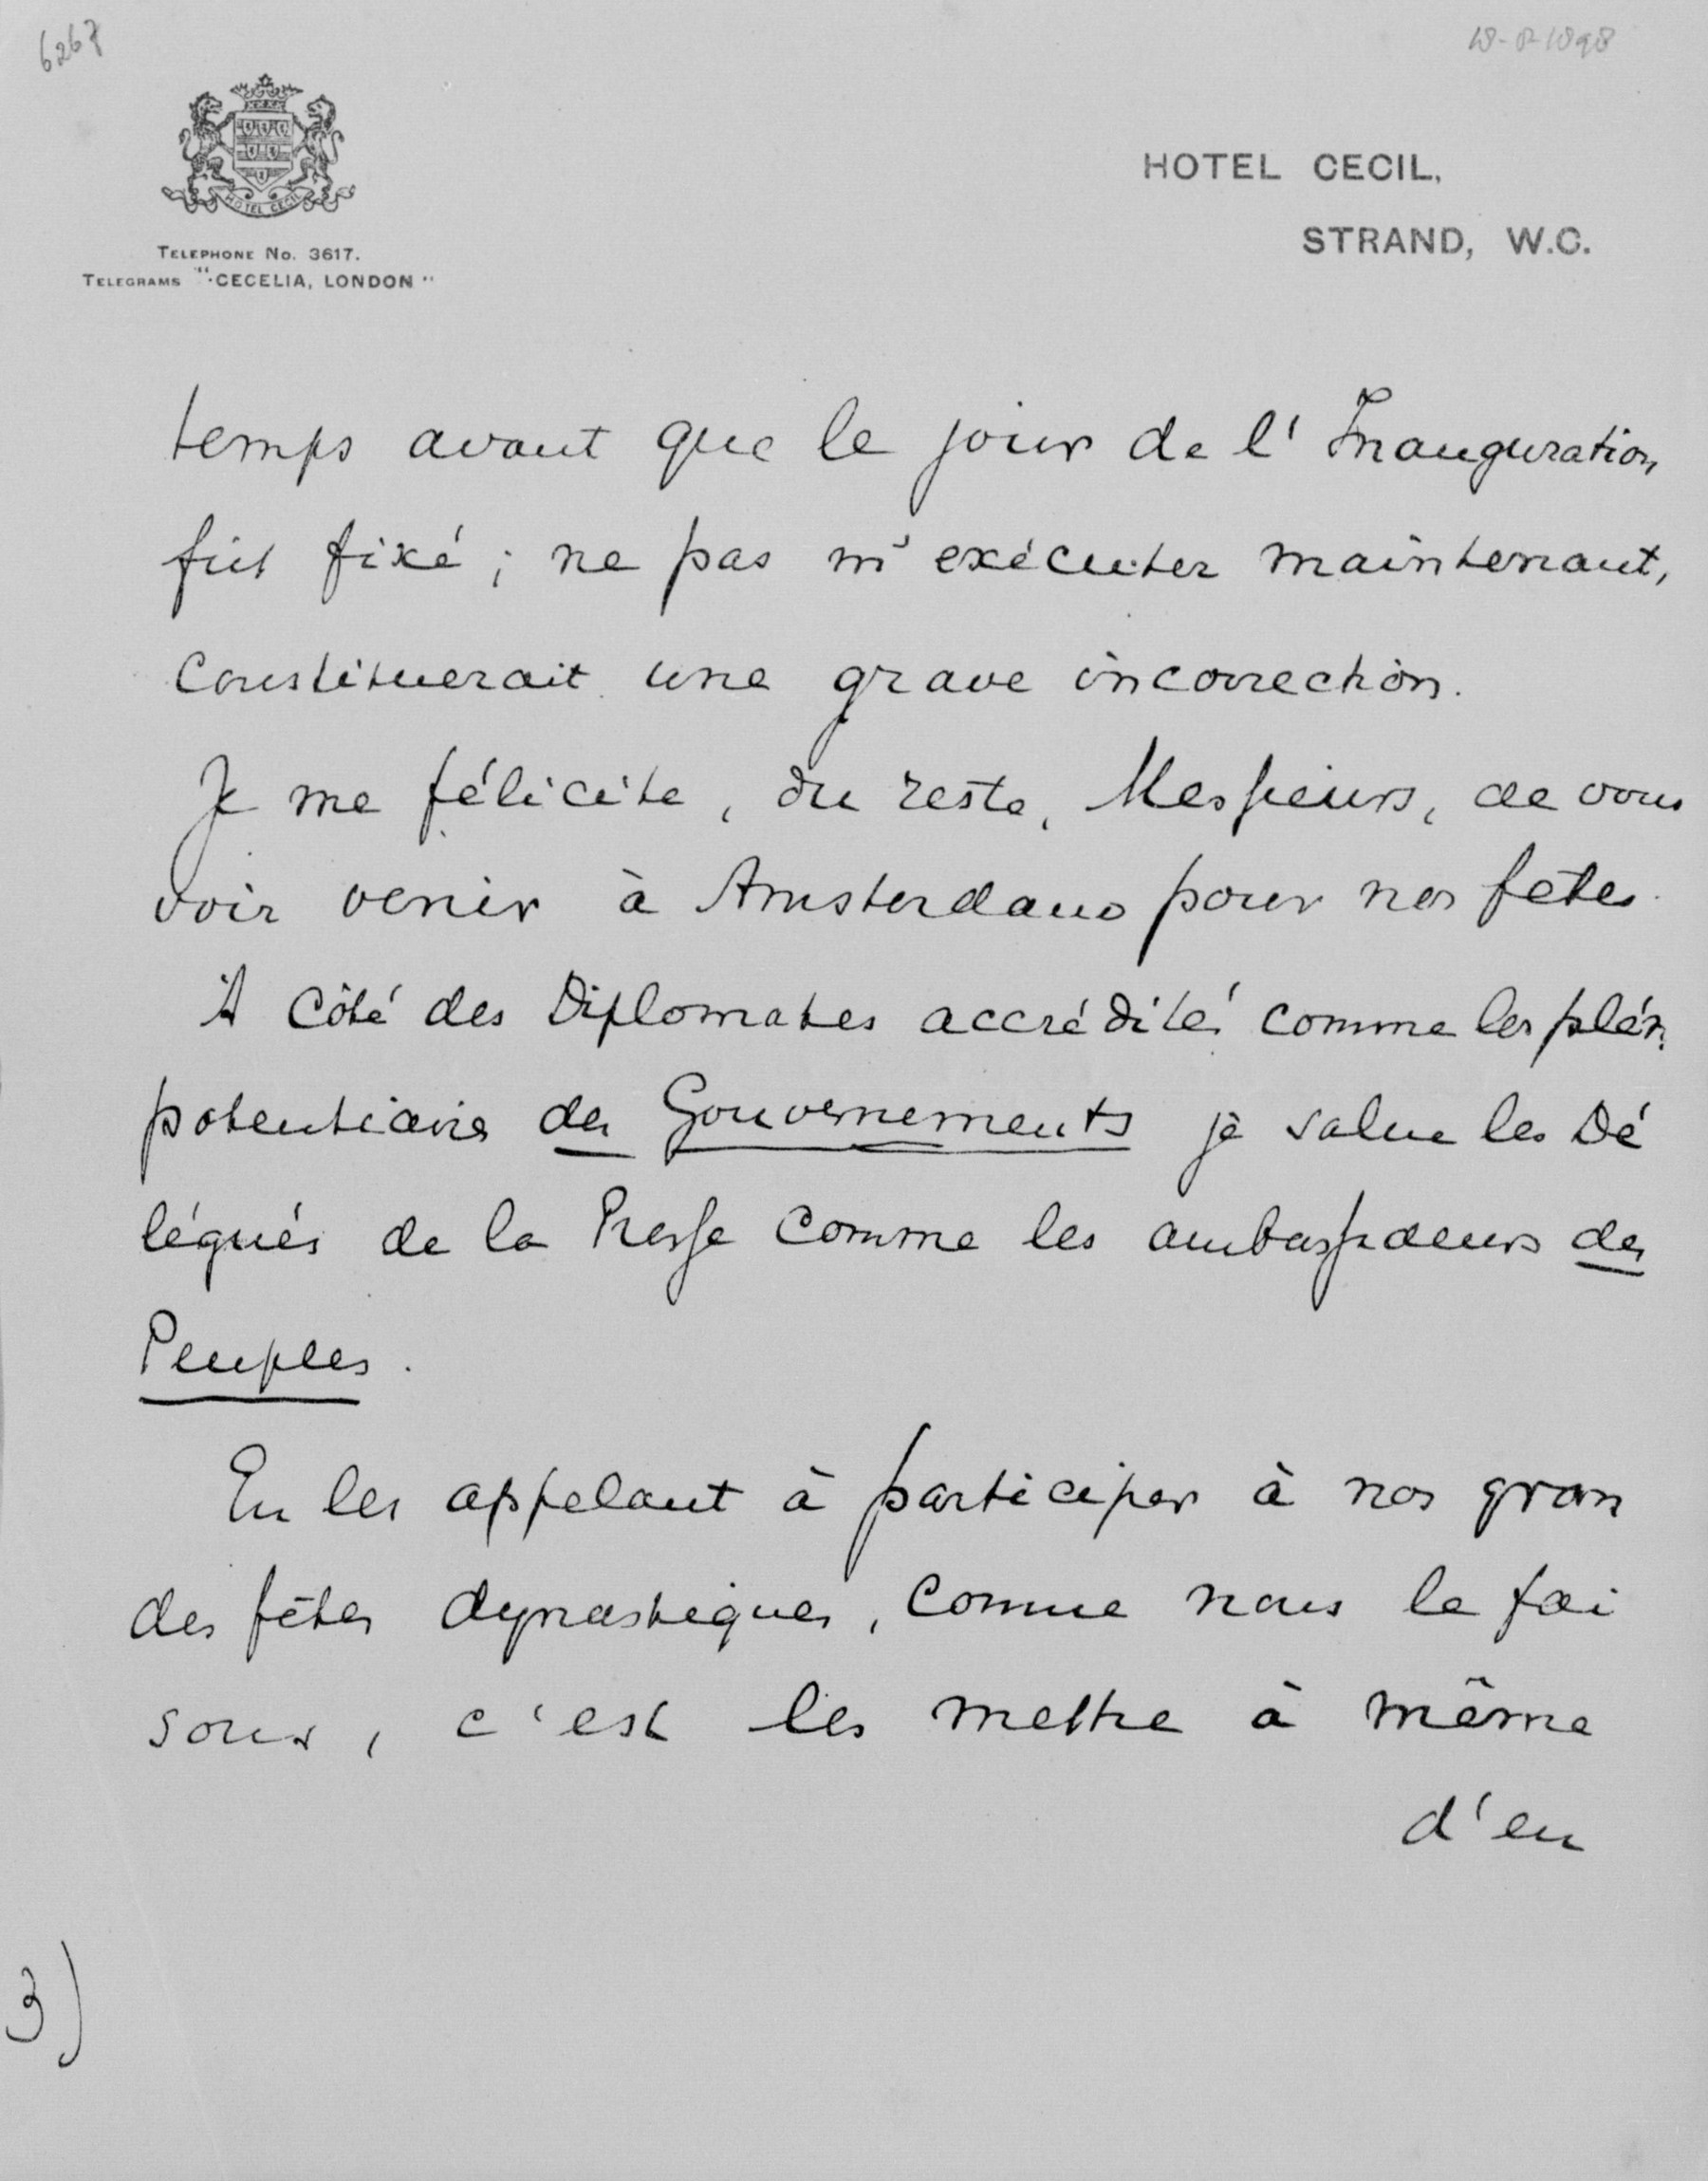 6267
18-8-1898
HOTEL CECIL
TELEPHONE No. 3617.
TELEGRAMS "CECELIA, LONDON"
HOTEL CECIL,
STRAND, W.C.
temps avant que le jour de l'Inauguration
fût fixé; ne pas m'exécuter maintenant,
constituerait une grave incorrection.
Je me félicite, du reste, Messieurs, de vous
voir venir à Amsterdam pour nos fêtes.
A côté des Diplomates accrédités comme les pléni
potentiaires des Gouvernements je salue les Dé
légués de la Presse comme les ambassadeurs des
Peuples.
En les appelant à participer à nos gran
des fêtes dynastiques, comme nous le fai
sons, c'est les mettre à même
d'en
3)